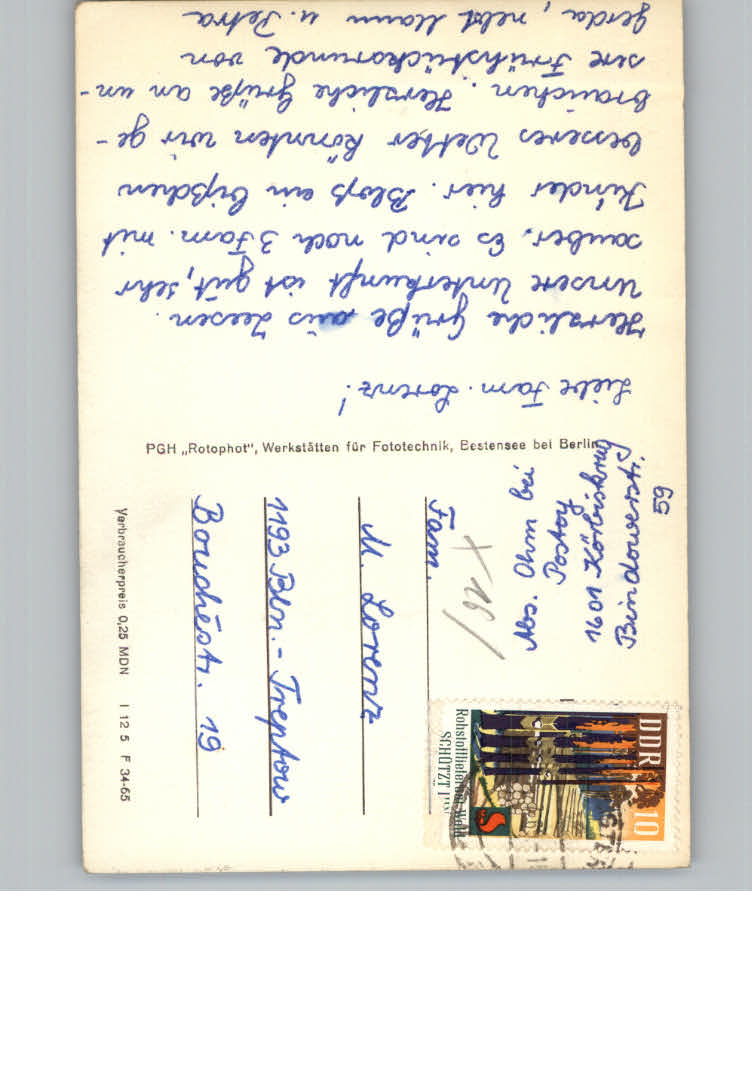 Liebe Fam. Lorenz!
Herzliche Grüße aus Zeesen.
Unsere Unterkunft ist gut, sehr
sauber. Es sind noch 3 Fam. mit
Kinder hier. Bloß ein bißchen
besseres Wetter könnten wir ge-
brauchen. Herzliche Grüße an un-
sere Frühstücksrunde von
Gerda, nebst Mann u. Petra
PGH „Rotophot“, Werkstätten für Fototechnik, Bestensee bei Berlin
Abs. Ohm bei
1601 Körbiskrug
Bindowerstr.
59
Fam.
M. Lorenz
1193 Bln.-Treptow
Bouchéstr. 19
Verbraucherpreis 0,25 MDN I 12 5 F 34-65
DDR
10
Rohstofflieferant Wald
SCHÜTZT